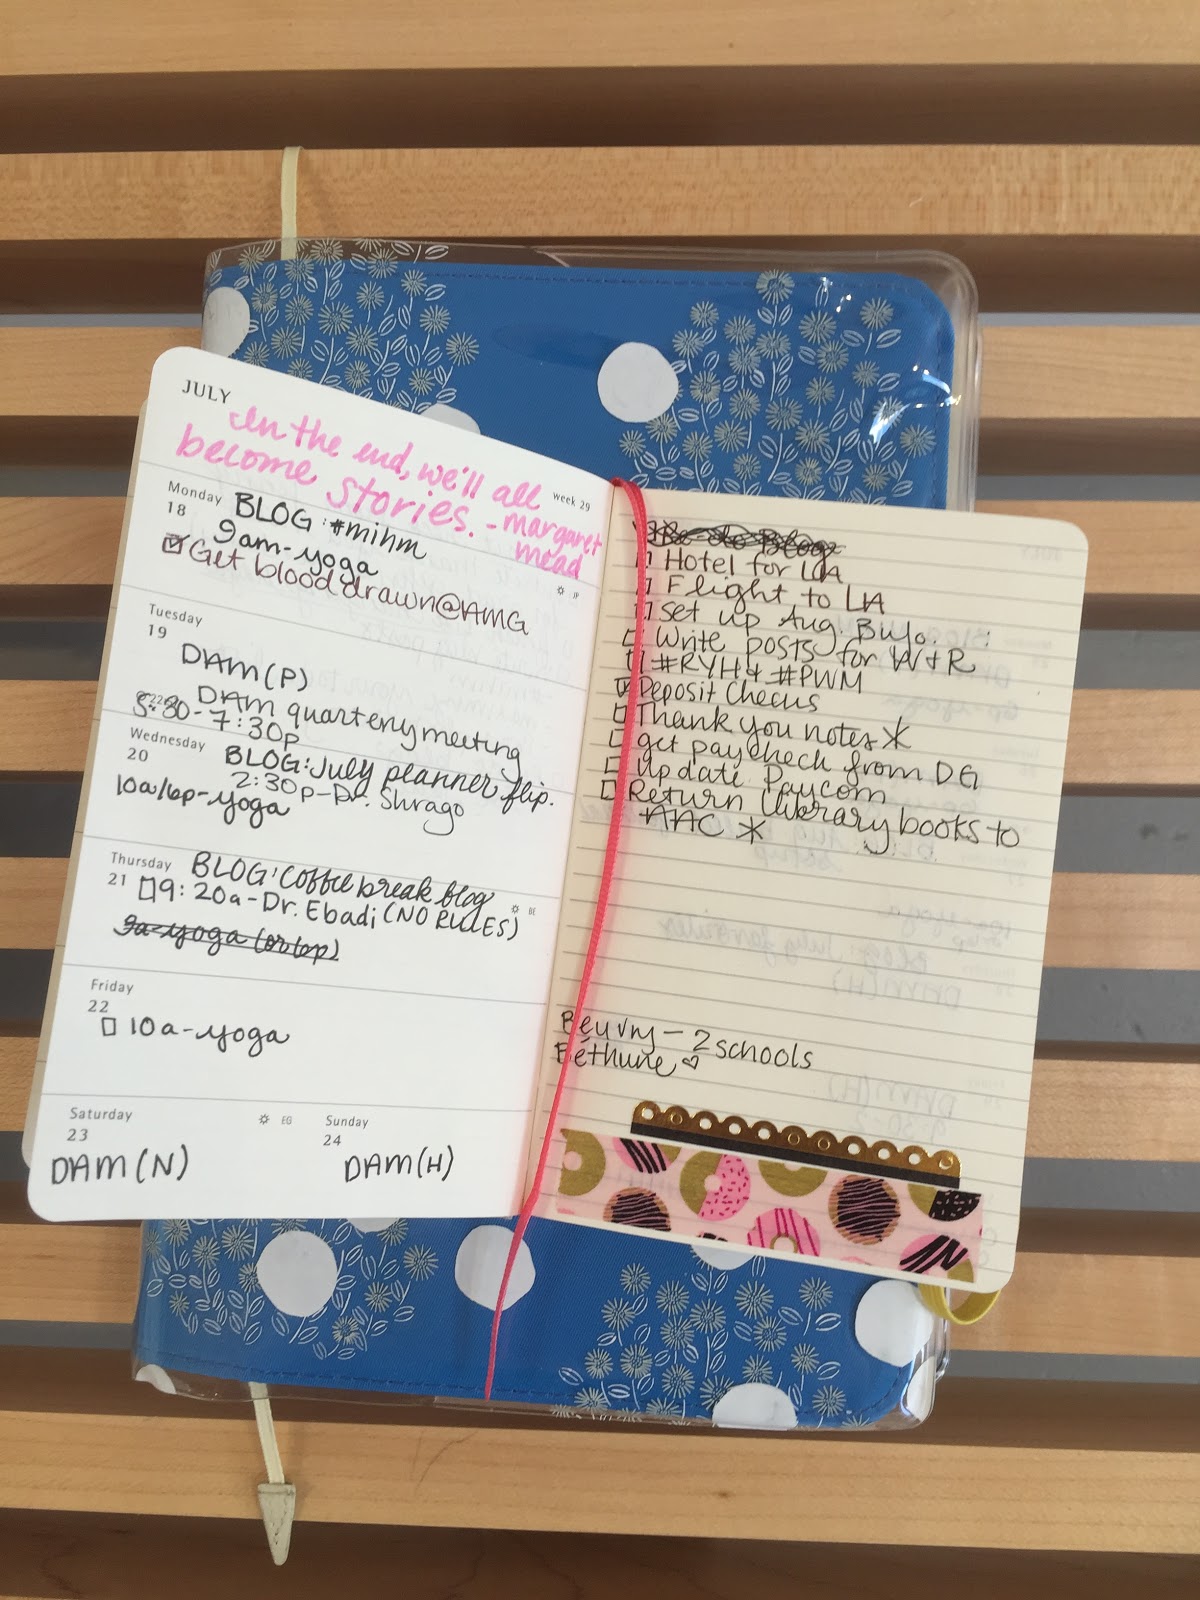 JULY
In the end, we'll all
become stories. -margaret
mead
week 29
Monday
18
BLOG: #mihm
9am-yoga
Get blood drawn@AMG
JP
Tuesday
19
DAM(P)
DAM quarterly meeting
5:30-7:30p
Wednesday
20
BLOG: July planner flip.
2:30p-Dr. Shrago
10a/6p-yoga
Thursday
21
BLOG: coffee break blog
9:20a-Dr. Ebadi (NO RULES)
BE
9a-yoga (or 6p)
Friday
22
10a-yoga
Saturday
23
EG
DAM(N)
Sunday
24
DAM(H)
Re-do Blog
Hotel for LA
Flight to LA
set up Aug. BuJo.
Write posts for W+R
#RYH+ #PWM
Deposit Checks
Thank you notes*
get paycheck from DG
update Paycom
Return library books to
AAC *
Beuvry - 2 schools
Béthune ♡